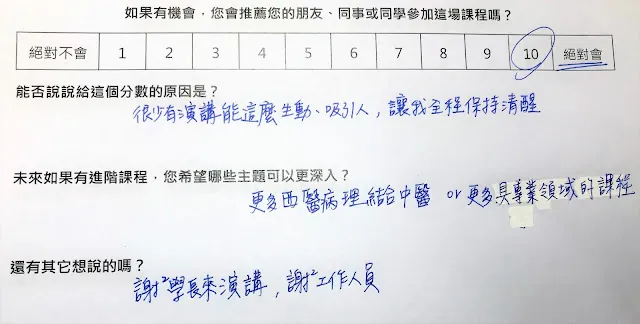 如果有機會，您會推薦您的朋友、同事或同學參加這場課程嗎？
絕對不會 1 2 3 4 5 6 7 8 9 10 絕對會
能否說說給這個分數的原因是？
很少有演講能這麼生動、吸引人，讓我全程保持清醒
未來如果有進階課程，您希望哪些主題可以更深入？
更多西醫病理結合中醫 or 更多具專業領域的課程
還有其它想說的嗎？
謝²學長來演講，謝²工作人員